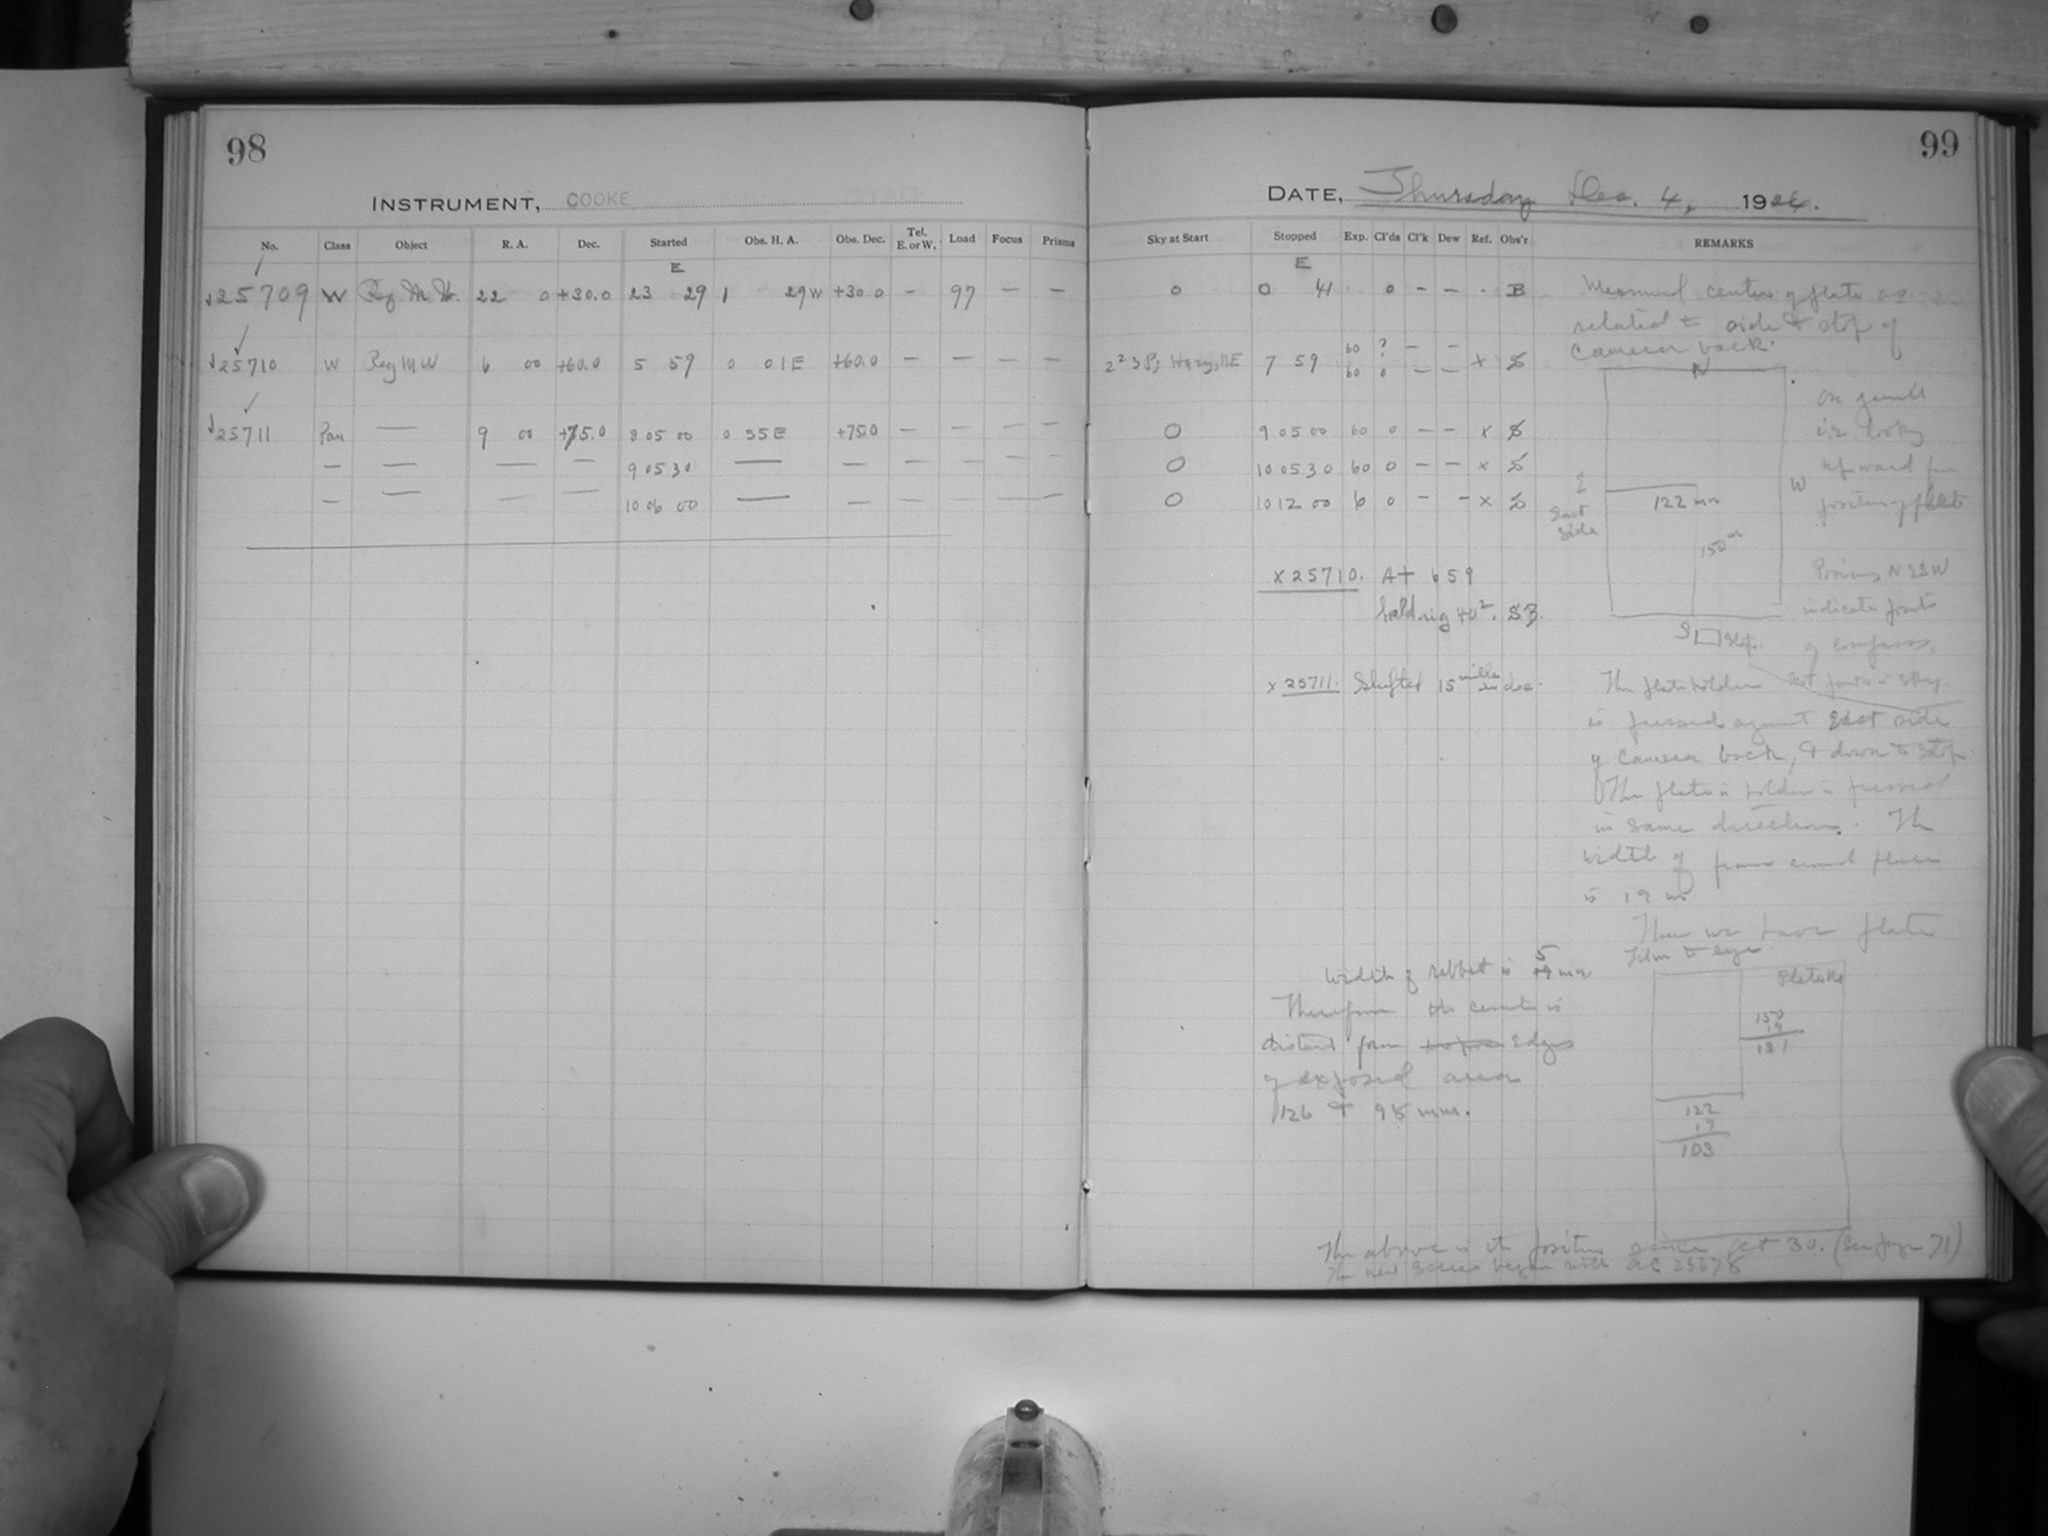 98
INSTRUMENT, COOKE
No. Class Object R. A. Dec. Started Obs. H. A. Obs. Dec. Tel. E. or W. Load Focus Prisms
E
25709 W Reg. M. W. 22 0 +30.0 23 29 1 29 W +30.0 - 97 - -
25710 W Reg M W 6 00 +60.0 5 59 0 01E +60.0 - - - -
25711 Pan — 9 00 +75.0 8 05 00 0 55E +75.0 - - - -
— — — — 9 05 30 — — - - - -
— — — — 10 06 00 — — - - - -
99
DATE, Thursday Dec. 4, 1924.
Sky at Start Stopped Exp. Cl'ds Cl'k Dew Ref. Obs'r REMARKS
E
0 0 41 0 - - . B
Measured center of plate as
related to side & stop of
camera back.
2 2 3 P; Hazy, NE 7 59 60 ? - -
60 0 - - x S
0 9 05 00 60 0 - - x S
0 10 05 30 60 0 - - x S
0 10 12 00 6 0 - - x S
N
E
East
side
W
122 mm
150 mm
S stop.
i.e. looking
upward for
position of plate
N E S W
indicate points
of compass,
not points in sky.
x 25710. At 6 59
SB.
x 25711. Shifted 15 in dec.
The plateholder
is pressed against East side
of camera back, & down to stop.
The plate in holder is pressed
in same direction. The
width of frame around plate
is 19 mm
Then we have plate
Film to eye
Plate No
150
19
131
122
19
103
Width of rebbet is 5 mm
Therefore the center is
distant from edges
of exposed area
126 & 98 mm.
The above is the position since Oct 30. (See page 71)
The new series began with AC 25678